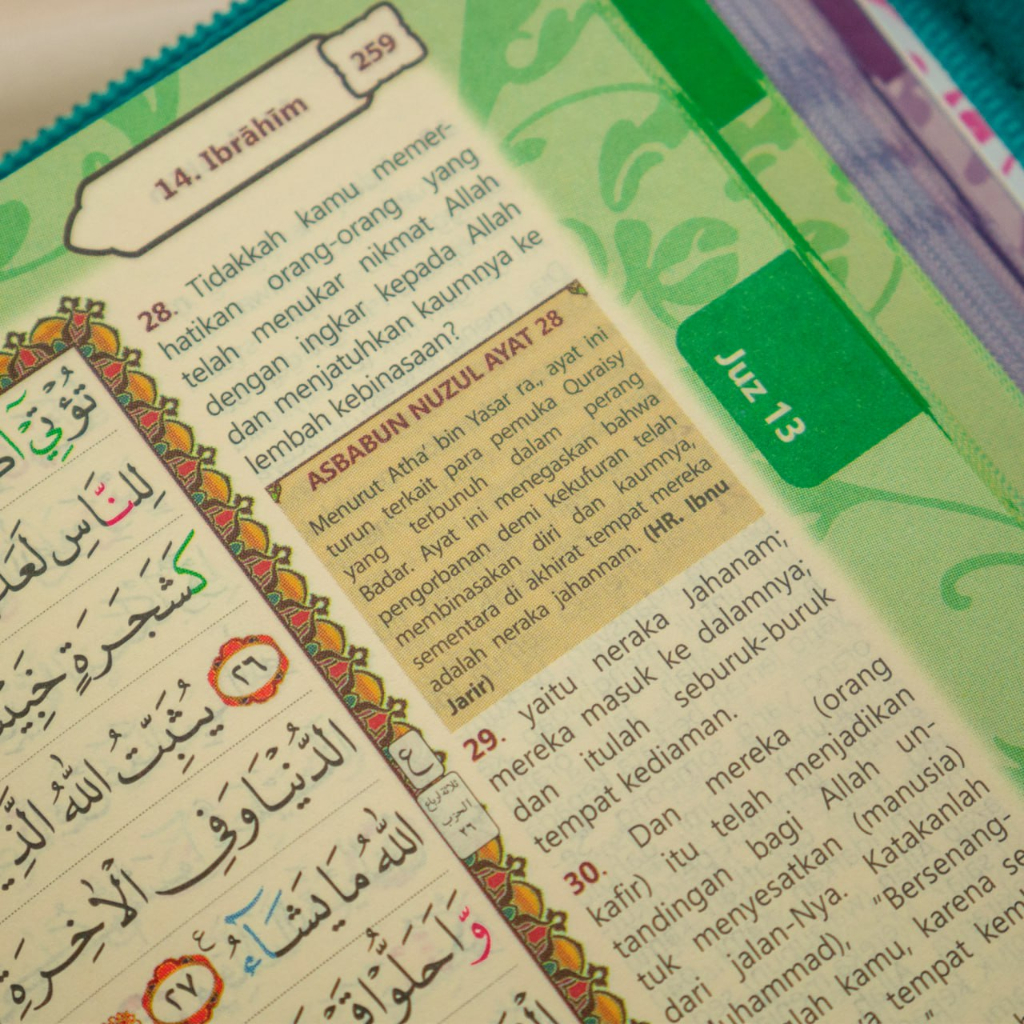 259
14. Ibrāhīm
28. Tidakkah kamu memer-
hatikan orang-orang yang
telah menukar nikmat Allah
dengan ingkar kepada Allah
dan menjatuhkan kaumnya ke
lembah kebinasaan?
ASBABUN NUZUL AYAT 28
Menurut Atha' bin Yasar ra., ayat ini
turun terkait para pemuka Quraisy
yang terbunuh dalam perang
Badar. Ayat ini menegaskan bahwa
pengorbanan demi kekufuran telah
membinasakan diri dan kaumnya,
sementara di akhirat tempat mereka
adalah neraka jahannam. (HR. Ibnu
Jarir)
29. yaitu neraka Jahanam;
mereka masuk ke dalamnya;
dan itulah seburuk-buruk
tempat kediaman.
30. Dan mereka (orang
kafir) itu telah menjadikan
tandingan bagi Allah un-
tuk menyesatkan (manusia)
dari jalan-Nya. Katakanlah
"Bersenang-
kamu, karena
tempat
Juz 13
تُؤْتِيْٓ
لِلنَّاسِ
كَشَجَرَةٍ
٢٦
يُثَبِّتُ اللّٰهُ
الدُّنْيَا وَفِى الْاٰخِرَةِ
اللّٰهُ مَا يَشَاۤءُ
٢٧ ع
وَّاَحَلُّوْا
ع
ثلاثة ارباع
الحزب
٢٦